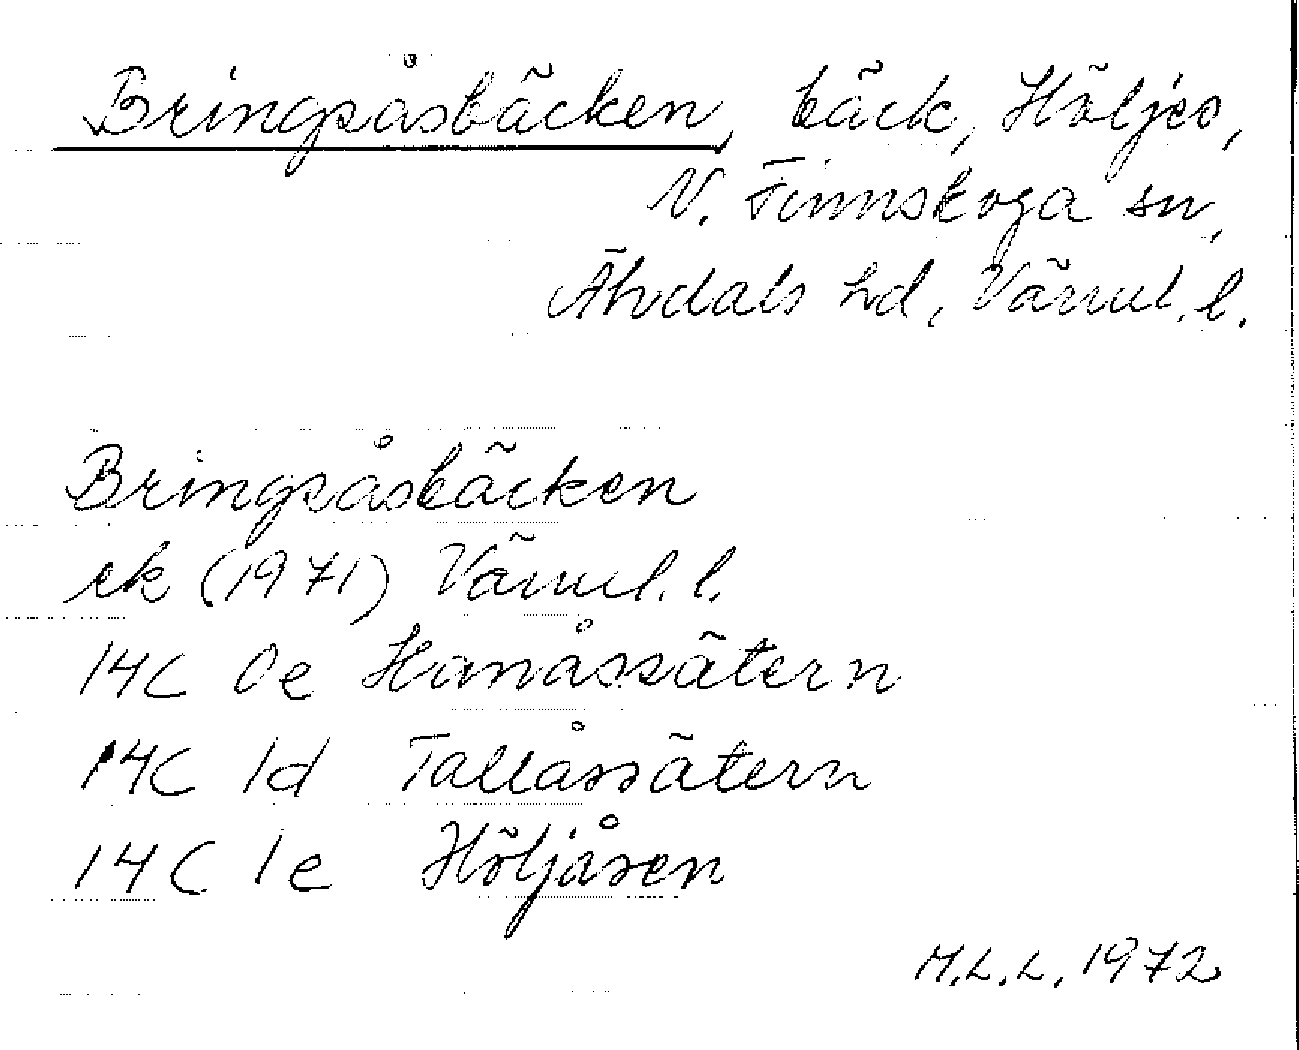 Bringsåsbäcken, bäck, Höljes,
N. Finnskoga sn,
Älvdals hd, Värml. l.
Bringsåsbäcken
ek (1971) Värml. l.
14C 0e Hanåssätern
14C 1d Tallåssätern
14C 1e Höljåsen
M.L.L. 1972